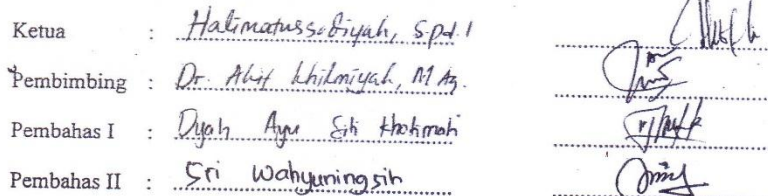 Ketua : Halimatussa'diyah, S.Pd.I
Pembimbing : Dr. Akif Khilmiyah, M.Ag.
Pembahas I : Dyah Ayu Siti Khotimah
Pembahas II : Sri Wahyuningsih